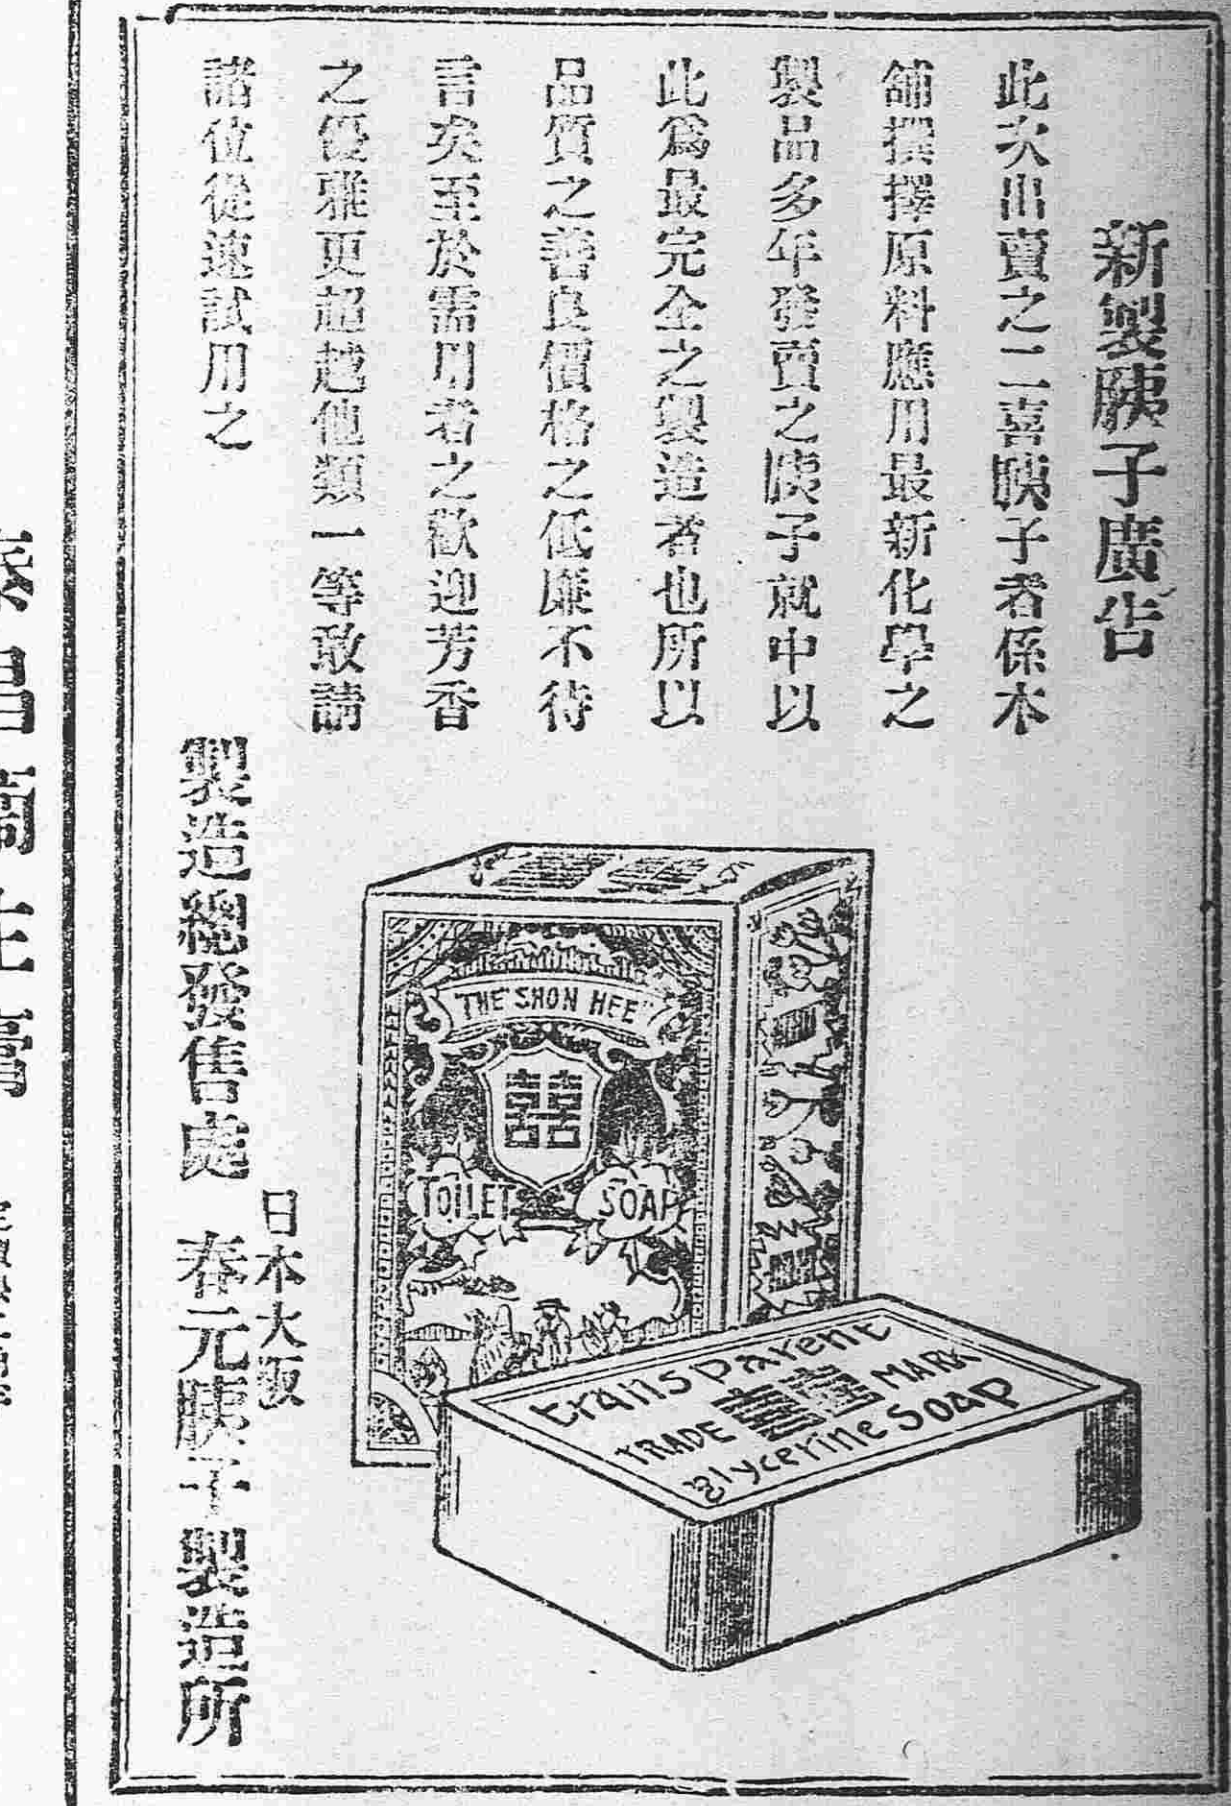 新製胰子廣告
此次出賣之二喜胰子者係本
舖撰擇原料應用最新化學之
製品多年發賣之胰子就中以
此爲最完全之製造者也所以
品質之善良價格之低廉不待
言矣至於需用者之歡迎芳香
之優雅更超越他類一等敢請
諸位從速試用之
"THE SHON HEE"
囍
TOILET SOAP
transparent
TRADE 囍 MARK
Glycerine SOAP
日本大阪
製造總發售處 春元胰子製造所